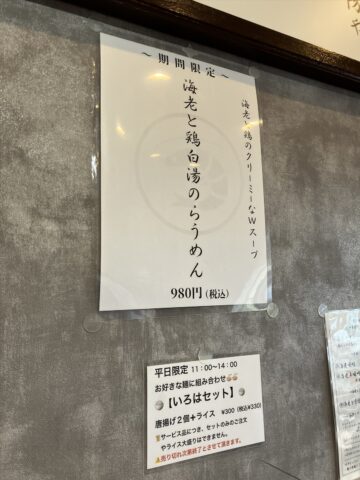 ～期間限定～
海老と鶏のクリーミーなWスープ
海老と鶏白湯のらうめん
980円（税込）
平日限定 11：00〜14：00
お好きな麺に組み合わせ
【いろはセット】
唐揚げ２個＋ライス ¥300（税込¥330）
サービス品につき、セットのみのご注文
やライス大盛りはできません。
売り切れ次第終了とさせて頂きます。